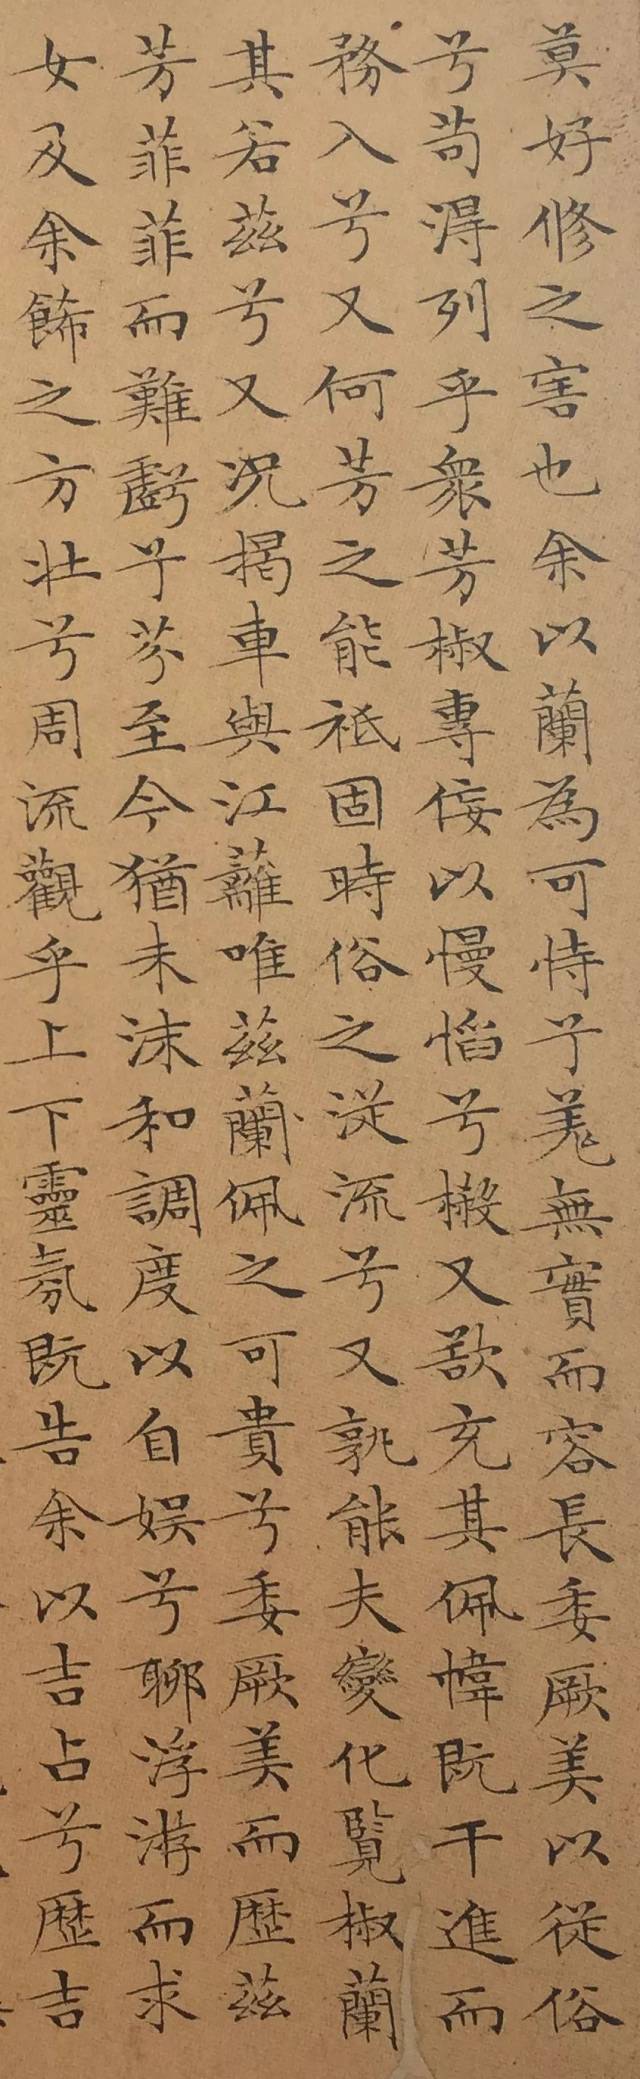 莫好修之害也余以蘭為可恃兮羌無實而容長委厥美以從俗
兮苟得列乎衆芳椒專佞以慢慆兮樧又欲充其佩幃既干進而
務入兮又何芳之能祗固時俗之從流兮又孰能夫變化覽椒蘭
其若茲兮又况揭車與江蘺唯茲蘭佩之可貴兮委厥美而歷茲
芳菲菲而難虧兮芬至今猶未沬和調度以自娛兮聊浮游而求
女及余飾之方壯兮周流觀乎上下靈氛既告余以吉占兮歷吉